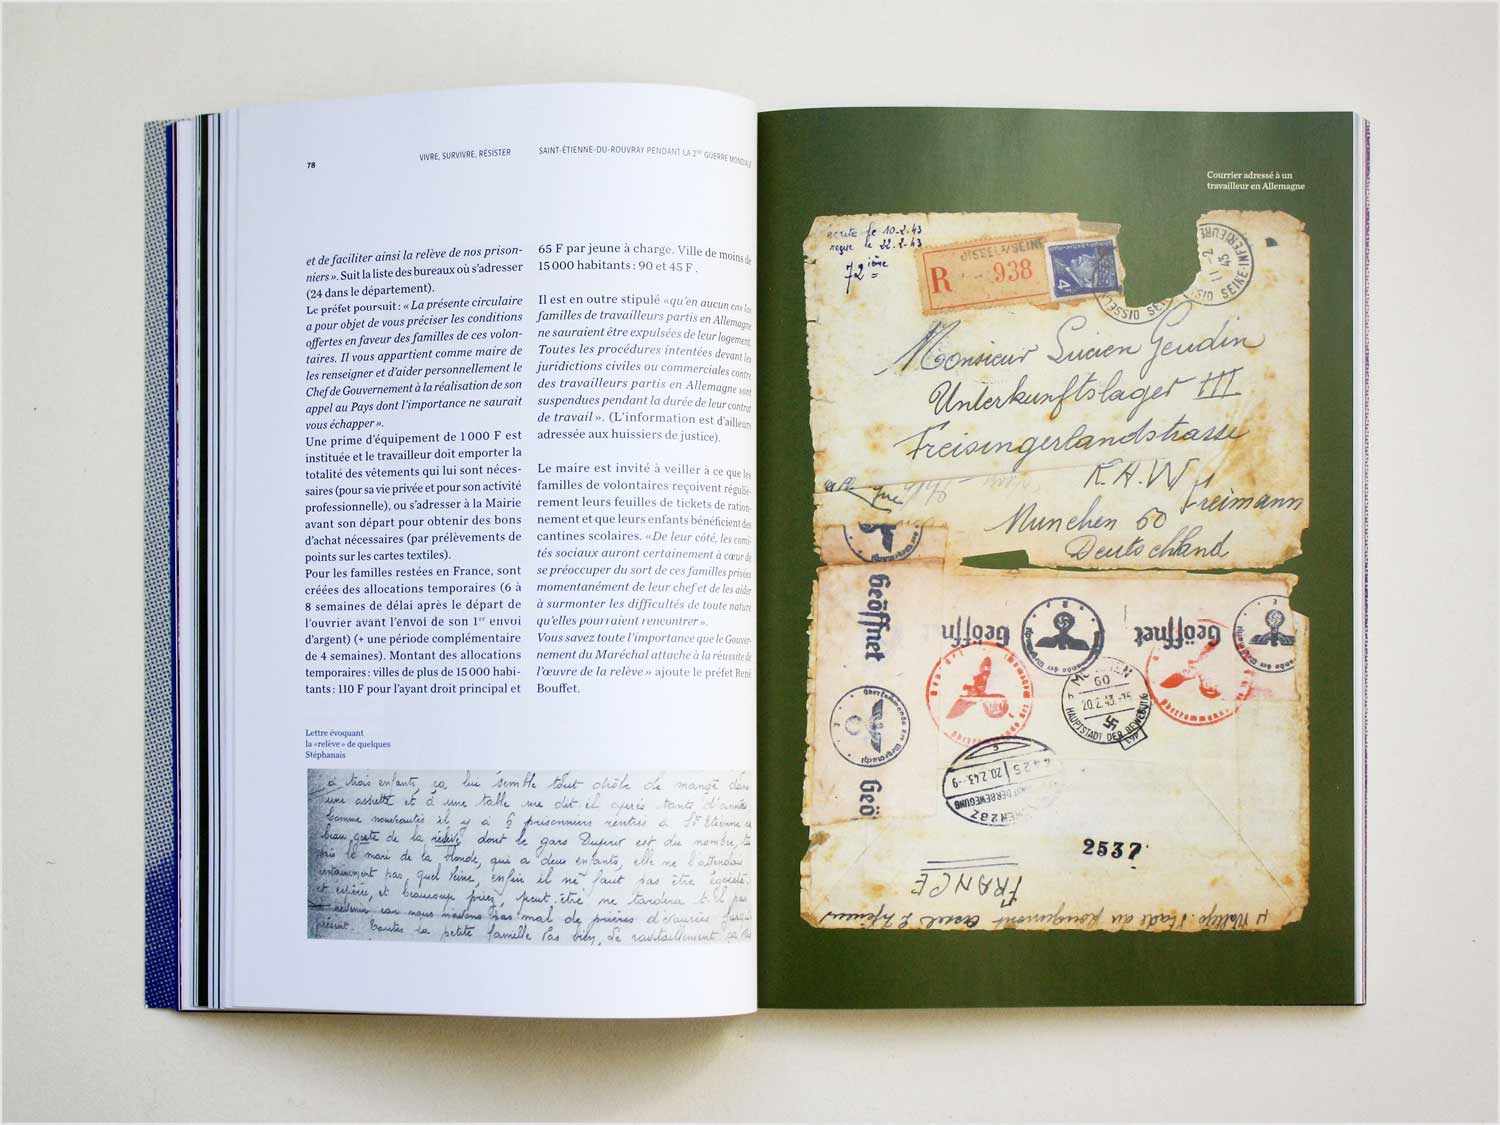 78
VIVRE, SURVIVRE, RÉSISTER
SAINT-ÉTIENNE-DU-ROUVRAY PENDANT LA 2NDE GUERRE MONDIALE
et de faciliter ainsi la relève de nos prison-
niers ». Suit la liste des bureaux où s'adresser
(24 dans le département).
Le préfet poursuit : « La présente circulaire
a pour objet de vous préciser les conditions
offertes en faveur des familles de ces volon-
taires. Il vous appartient comme maire de
les renseigner et d'aider personnellement le
Chef de Gouvernement à la réalisation de son
appel au Pays dont l'importance ne saurait
vous échapper ».
Une prime d'équipement de 1 000 F est
instituée et le travailleur doit emporter la
totalité des vêtements qui lui sont néces-
saires (pour sa vie privée et pour son activité
professionnelle), ou s'adresser à la Mairie
avant son départ pour obtenir des bons
d'achat nécessaires (par prélèvements de
points sur les cartes textiles).
Pour les familles restées en France, sont
créées des allocations temporaires (6 à
8 semaines de délai après le départ de
l'ouvrier avant l'envoi de son 1er envoi
d'argent) (+ une période complémentaire
de 4 semaines). Montant des allocations
temporaires : villes de plus de 15 000 habi-
tants : 110 F pour l'ayant droit principal et
65 F par jeune à charge. Ville de moins de
15 000 habitants : 90 et 45 F .
Il est en outre stipulé « qu'en aucun cas les
familles de travailleurs partis en Allemagne
ne sauraient être expulsées de leur logement.
Toutes les procédures intentées devant les
juridictions civiles ou commerciales contre
des travailleurs partis en Allemagne sont
suspendues pendant la durée de leur contrat
de travail ». (L'information est d'ailleurs
adressée aux huissiers de justice).
Le maire est invité à veiller à ce que les
familles de volontaires reçoivent réguliè-
rement leurs feuilles de tickets de ration-
nement et que leurs enfants bénéficient des
cantines scolaires. « De leur côté, les comi-
tés sociaux auront certainement à cœur de
se préoccuper du sort de ces familles privées
momentanément de leur chef et de les aider
à surmonter les difficultés de toute nature
qu'elles pourraient rencontrer ».
Vous savez toute l'importance que le Gouver-
nement du Maréchal attache à la réussite de
l'œuvre de la relève » ajoute le préfet René
Bouffet.
Lettre évoquant
la « relève » de quelques
Stéphanais
à trois enfants, ça lui semble tout drôle de mangé dans
une assiette et à une table me dit-il après tants d'année
Comme nouveautés il y a 6 prisonniers rentrés à St Etienne
beau geste de la relève dont le gars est du nombre,
le mari de la blonde, qui a deux enfants, elle ne l'attendait
certainement pas, quel veine, enfin il ne faut pas être égoïste
et espérée, et beaucoup priez, peut-être ne tardera t-il pas
revenir car nous mal de prières d
présent. Toutes la petite famille bien, Le ravitaillement ça
Courrier adressé à un
travailleur en Allemagne
écrite le 10-2-43
reçue le 22-2-43
72 ième
R
OISSEL S/SEINE
938
4F
OISSEL SEINE INFERIEURE
11-2 43
Monsieur Lucien Geudin
Unterkunftslager III
Freisingerlandstrasse
K.A.W Freimann
Munchen 60
Deutschland
Geöffnet
Geöffn
Geöffnet
Geö
Oberkommando der Wehrmacht
MÜNCHEN
60
20.2.43.-15
HAUPTSTADT DER BEWEGUNG
4425 20.2.43.-9
2537
FRANCE